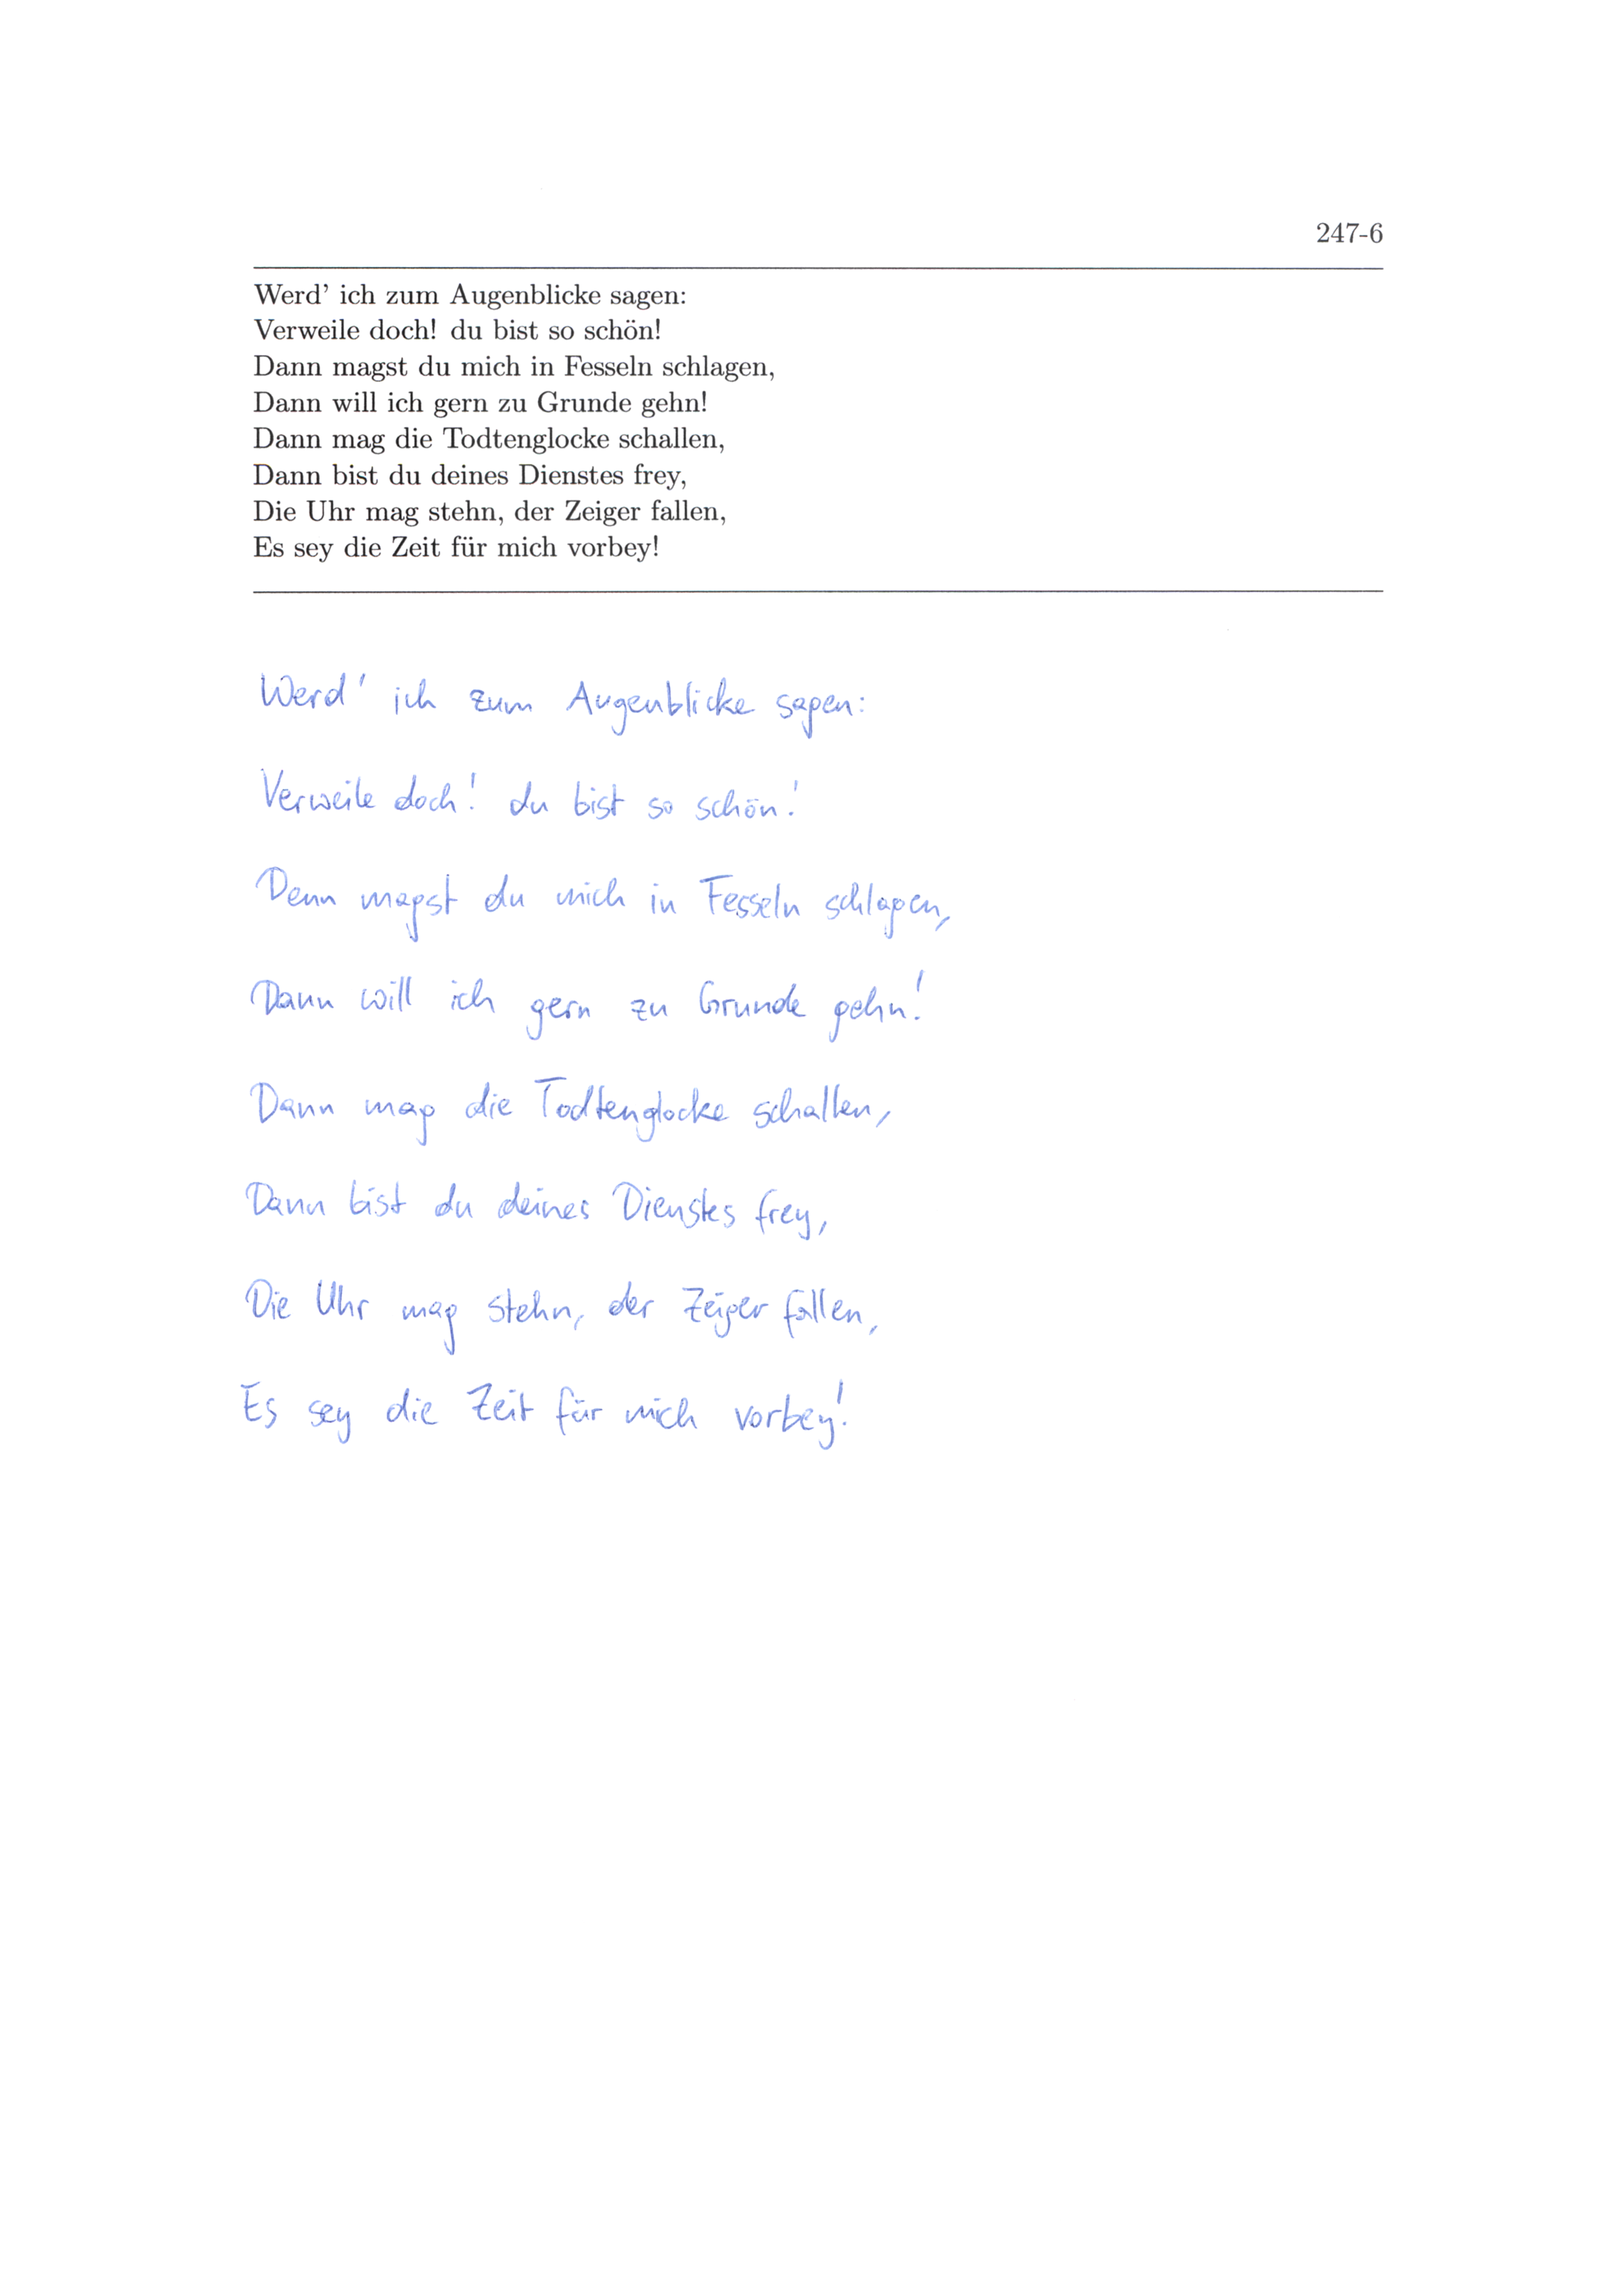 247-6
Werd' ich zum Augenblicke sagen:
Verweile doch! du bist so schön!
Dann magst du mich in Fesseln schlagen,
Dann will ich gern zu Grunde gehn!
Dann mag die Todtenglocke schallen,
Dann bist du deines Dienstes frey,
Die Uhr mag stehn, der Zeiger fallen,
Es sey die Zeit für mich vorbey!
Werd' ich zum Augenblicke sagen:
Verweile doch! du bist so schön!
Denn magst du mich in Fesseln schlagen,
Dann will ich gern zu Grunde gehn!
Dann mag die Todtenglocke schallen,
Dann bist du deines Dienstes frey,
Die Uhr mag stehn, der Zeiger fallen,
Es sey die Zeit für mich vorbey!